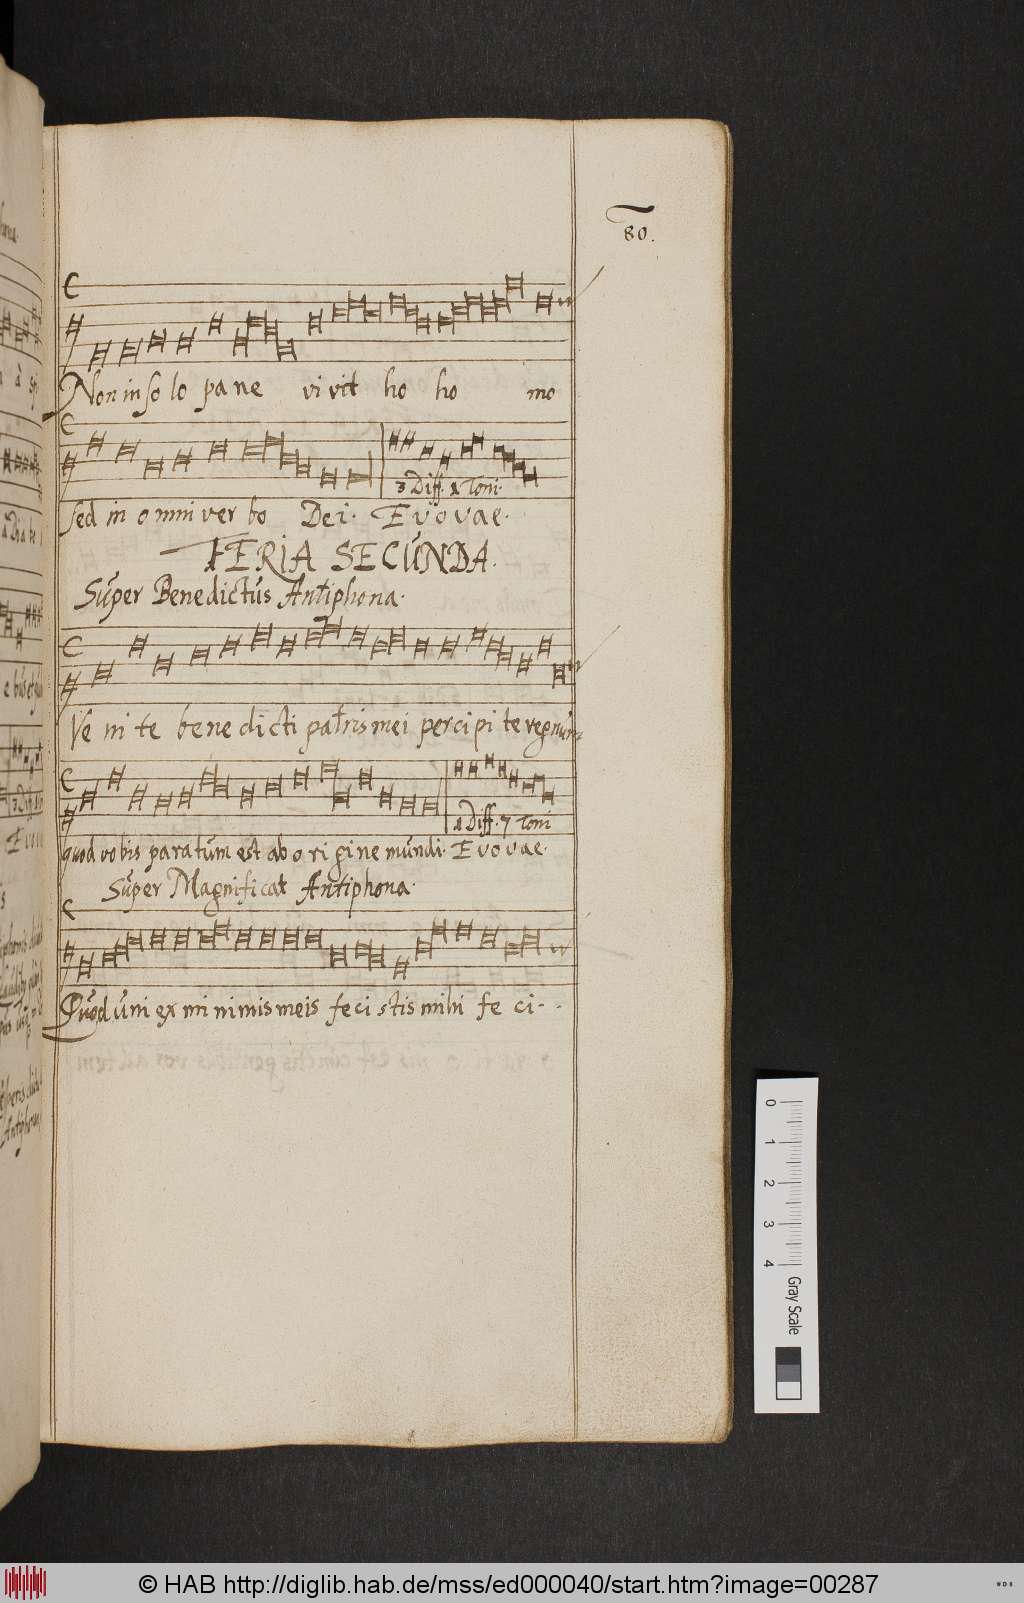 80.
Non in so lo pa ne vi vit ho ho mo
3 Diff. 1 Toni.
sed in o mni ver bo De i. E v o v a e.
FERIA SECUNDA.
Súper Benedictús Antiphona.
Ve ni te be ne di cti patris mei percipi te regnúm
1 Diff. 7 Toni
quod vobis paratúm est ab o ri gi ne múndi. E v o v a e.
Súper Magnificat Antiphona.
Quod úni ex mi nimis meis fe ci stis mihi fe ci.
0
1
2
3
4
Gray Scale
© HAB http://diglib.hab.de/mss/ed000040/start.htm?image=00287